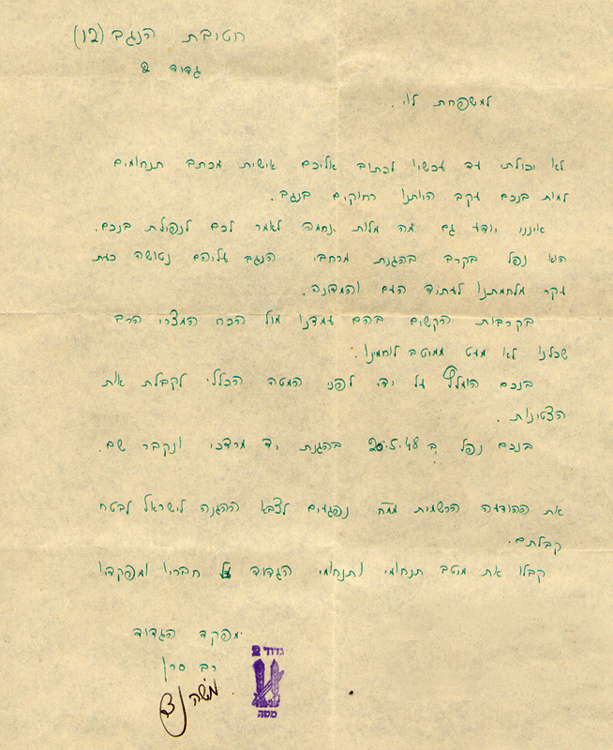 חטיבת הנגב (12)
גדוד 2
למשפחת לוי.
לא יכולתי עד עכשיו לכתוב אליכם אישית מכתב תנחומים
למות בנכם עקב היותנו רחוקים בנגב.
אינני יודע גם מה מלות נחמה לאמר לכם לנפילת בנכם.
הוא נפל בקרב בהגנת מרחבי הנגב עליהם נטושה כעת
עקר מלחמתנו לעתיד העם והמדינה.
בקרבות הקשים בהם עמדנו מול הכח המצרי הרב
שכלנו לא מעט ממיטב לוחמינו.
בנכם הומלץ על ידי לפני המטה הכללי לקבלת אות
הצטינות.
בנכם נפל ב 20.5.48 בהגנת יד מרדכי ונקבר שם.
את ההודעה הרשמית ממח נפגעים לצבא ההגנה לישראל לבטח
קבלתם.
קבלו את מיטב תנחומי ותנחומי הגדוד על חבריו ומפקדיו
מפקד הגדוד
רב סרן
משה נצר
גדוד 2
מטה